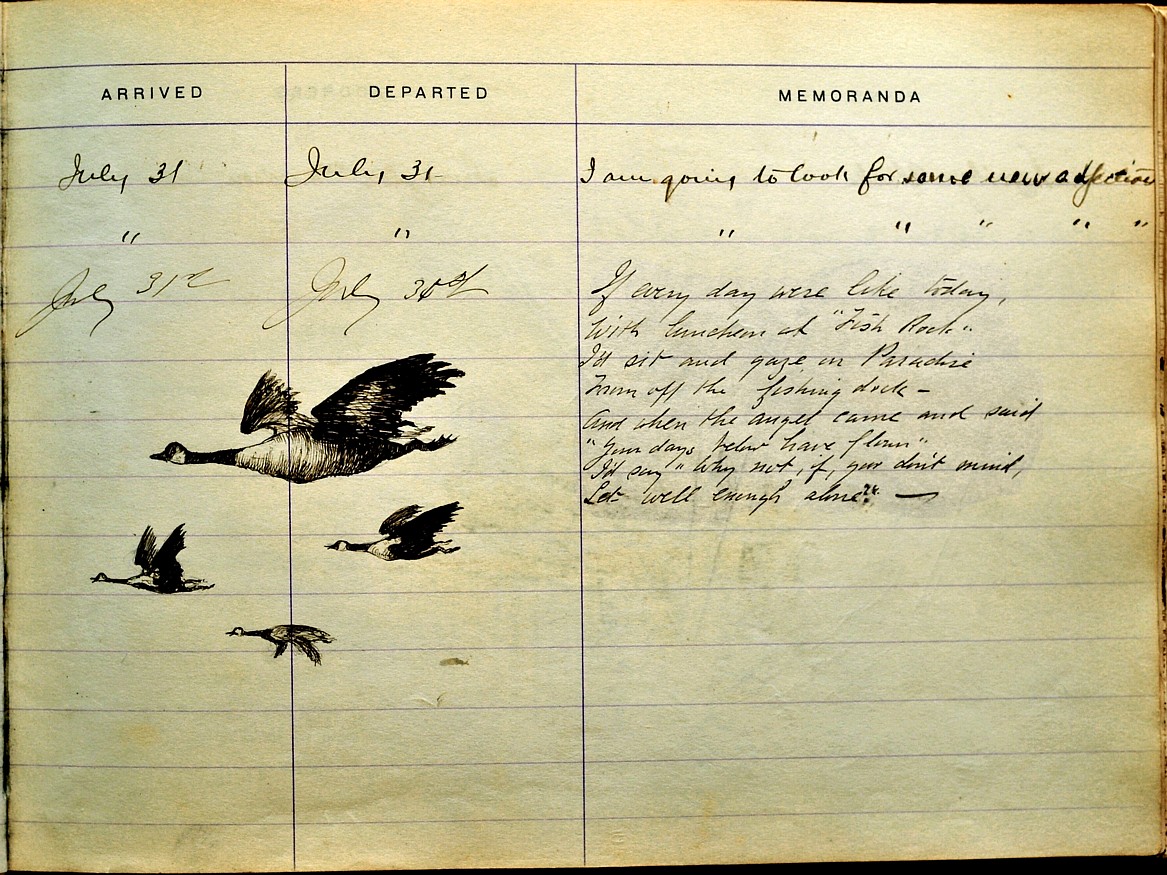 ARRIVED DEPARTED MEMORANDA
July 31 July 31- I am going to look for some new adjectives
" " " " " " "
July 31st July 31st If every day were like today,
With luncheon at "Fish Rock"
I'd sit and gaze on Paradise
From off the fishing dock –
And when the angel came and said
"Your days below have flown"
I'd say "Why not, if you don't mind,
Let well enough alone?" —